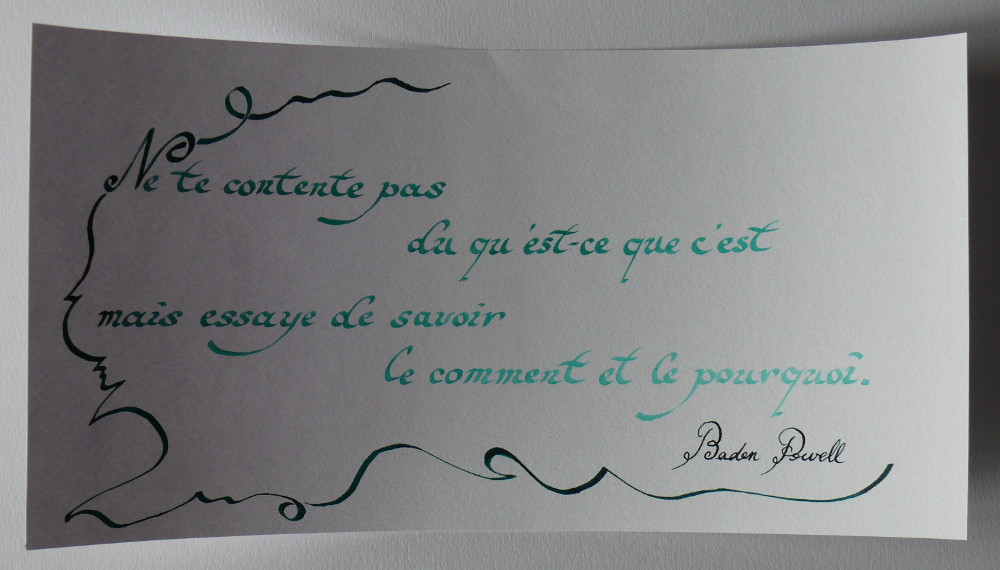 Ne te contente pas
du qu'est-ce que c'est
mais essaye de savoir
le comment et le pourquoi.
Baden Powell